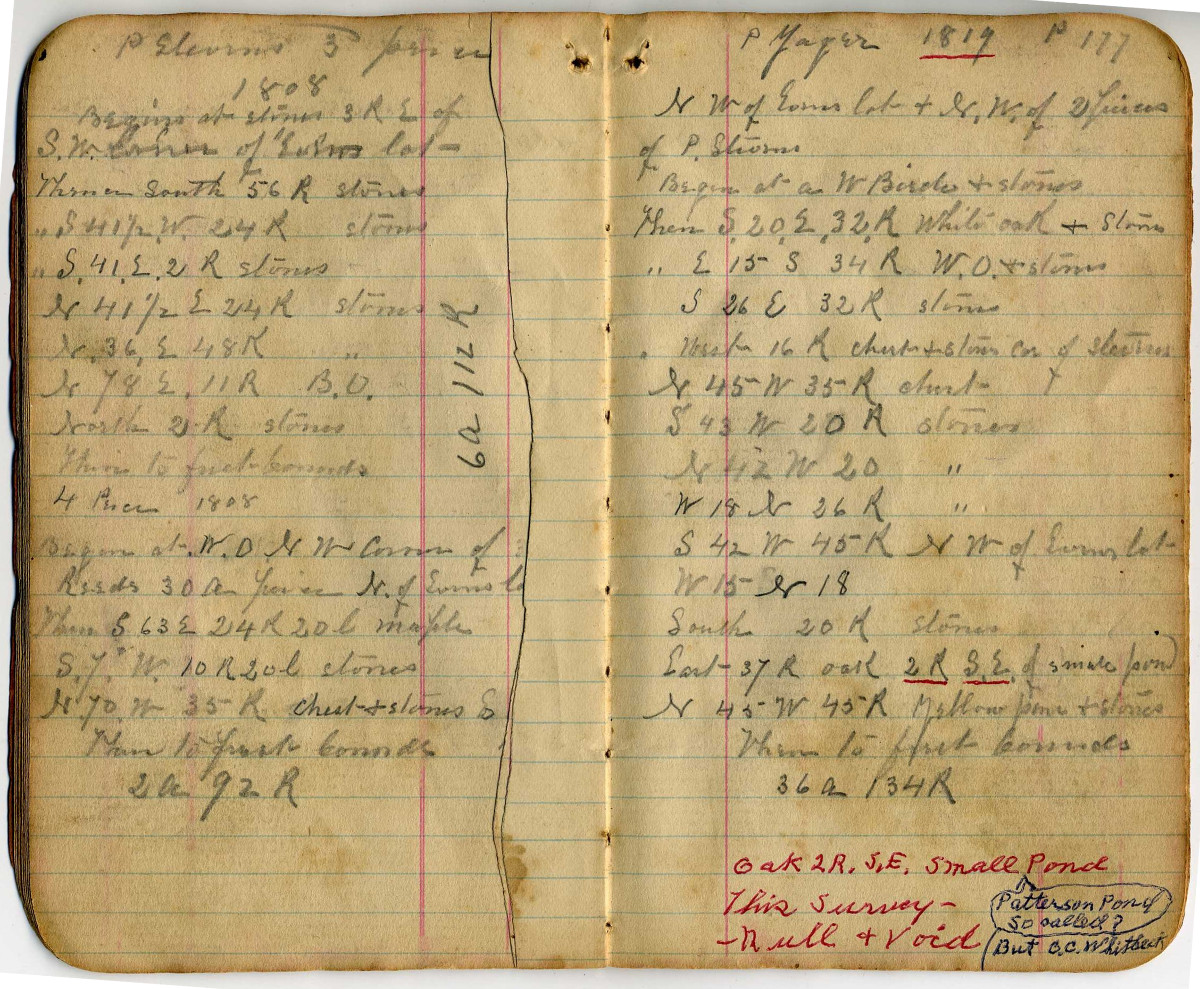 P Stevens 3 piece
1808
Begins at stones 3 R E of
S. W. Corner of Evens lot
Thence South 56 R stones
" S 41 1/2 W. 24 R stones
" S. 41. E. 2 R stones
N 41 1/2 E 24 R stones
N. 36, E 48 R "
N 78 E. 11 R B. O.
North 2 R stones
Then to first bounds
6a 112 R
4 Piece 1808
Began at W. O N W Corner of
Reeds 30 a piece N. of Evens lo
Then S. 63 E 24 R 20 l maple
S. 7. W. 10 R 20 l stones
N. 70. W 35 R chest + stones S
Then to first bounds
2a 92 R
P Yager 1819 P 177
N W of Evens lot + N. W. of 2 pieces
of P. Stevens
Began at a W Birch + stones
Then S. 20, E, 32, R White oak + Stones
" E 15 S 34 R W. O. + stones
S 26 E 32 R stones
West 16 R chest + stones cor of Stevens
N 45 W 35 R chest
S 43 W 20 R stones
N 42 W 20 "
W 18 N 26 R "
S 42 W 45 R N W of Evens lot
W 15 N 18
South 20 R stones
East 37 R oak 2 R S. E. of small pond
N 45 W 45 R Yellow pine + stones
Then to first bounds
36 a 134 R
Oak 2 R. S, E. Small Pond
This Survey -
- Null + Void
Patterson Pond
So called?
But C. C. Whitbeck